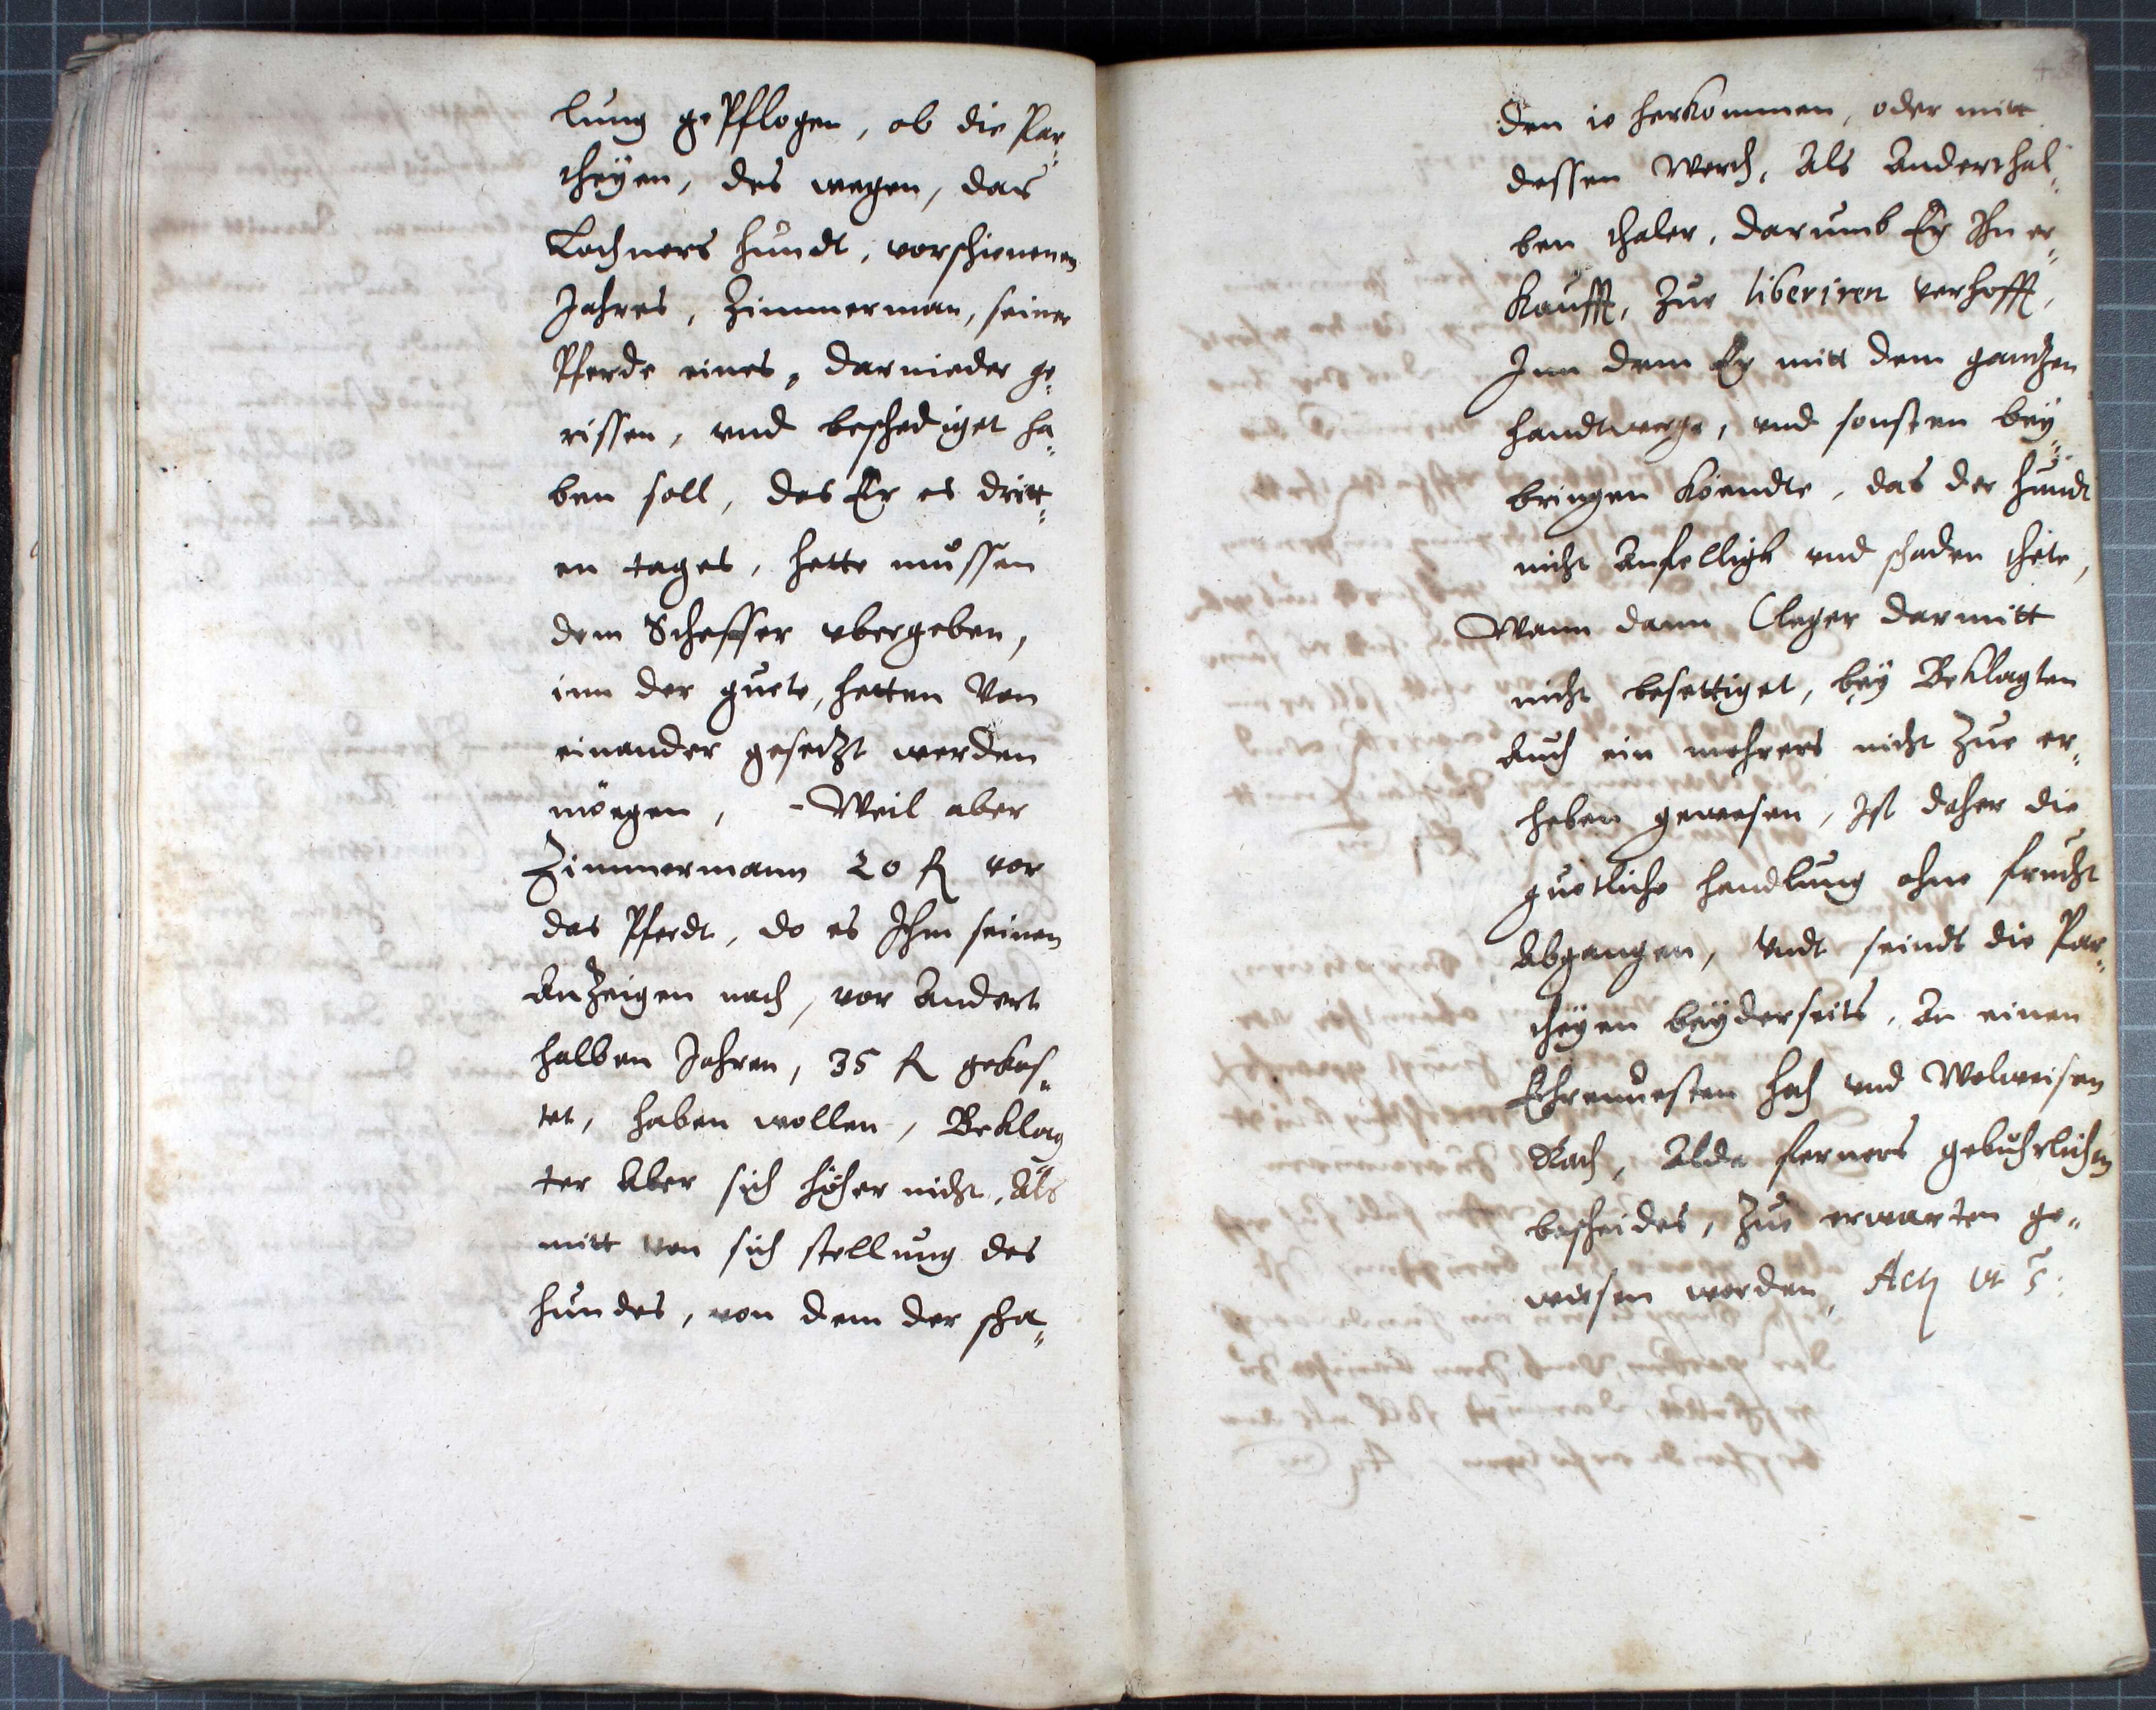 lung gePflogen, ob die Par¬
theÿen, des wegen, das
Lochners hundt, vorschienenen
Jahres, Zimmerman, seiner
Pferde eines, darnieder ge¬
rissen, vnd beschediget ha¬
ben soll, das Er es dritt¬
en tages, hette müssen
dem Scheffer vbergeben,
inn der guete, hetten Von
einander gesetzt werden
mögen, - Weil aber
Zimmermann 20 fl vor
das Pferdt, do es Ihm seinen
anZeigen nach, vor andert
halben Jahren, 35 fl gekos¬
tet, haben wollen, Beklag
ter aber sich höher nicht, als
mitt von sich stellung des
hundes, von dem der scha¬
den ie herkommen, oder mitt
dessen Werth, als anderthal¬
ben thaler, darumb Er Ihn er¬
kaufft, Zue liberiren verhofft,
Inn dem Er mitt dem gantzen
handtwerge, vnd sonsten beÿ¬
bringen köendte, das der hundt
nicht anfelligk vnd schaden thete,
Wann dann Cleger darmitt
nicht besettiget, beÿ Beklagten
auch ein mehrers nicht Zue er¬
heben gewesen, Ist daher die
guetliche handlung ohne frucht
abgangen, vndt seindt die Par¬
theÿen beÿderseits, an einen
Ehrnuesten hoch vnd Wolweisen
Rath, alda ferners gebührlichen
bescheides, Zue erwarten ge¬
wiesen worden, Act. vt s.